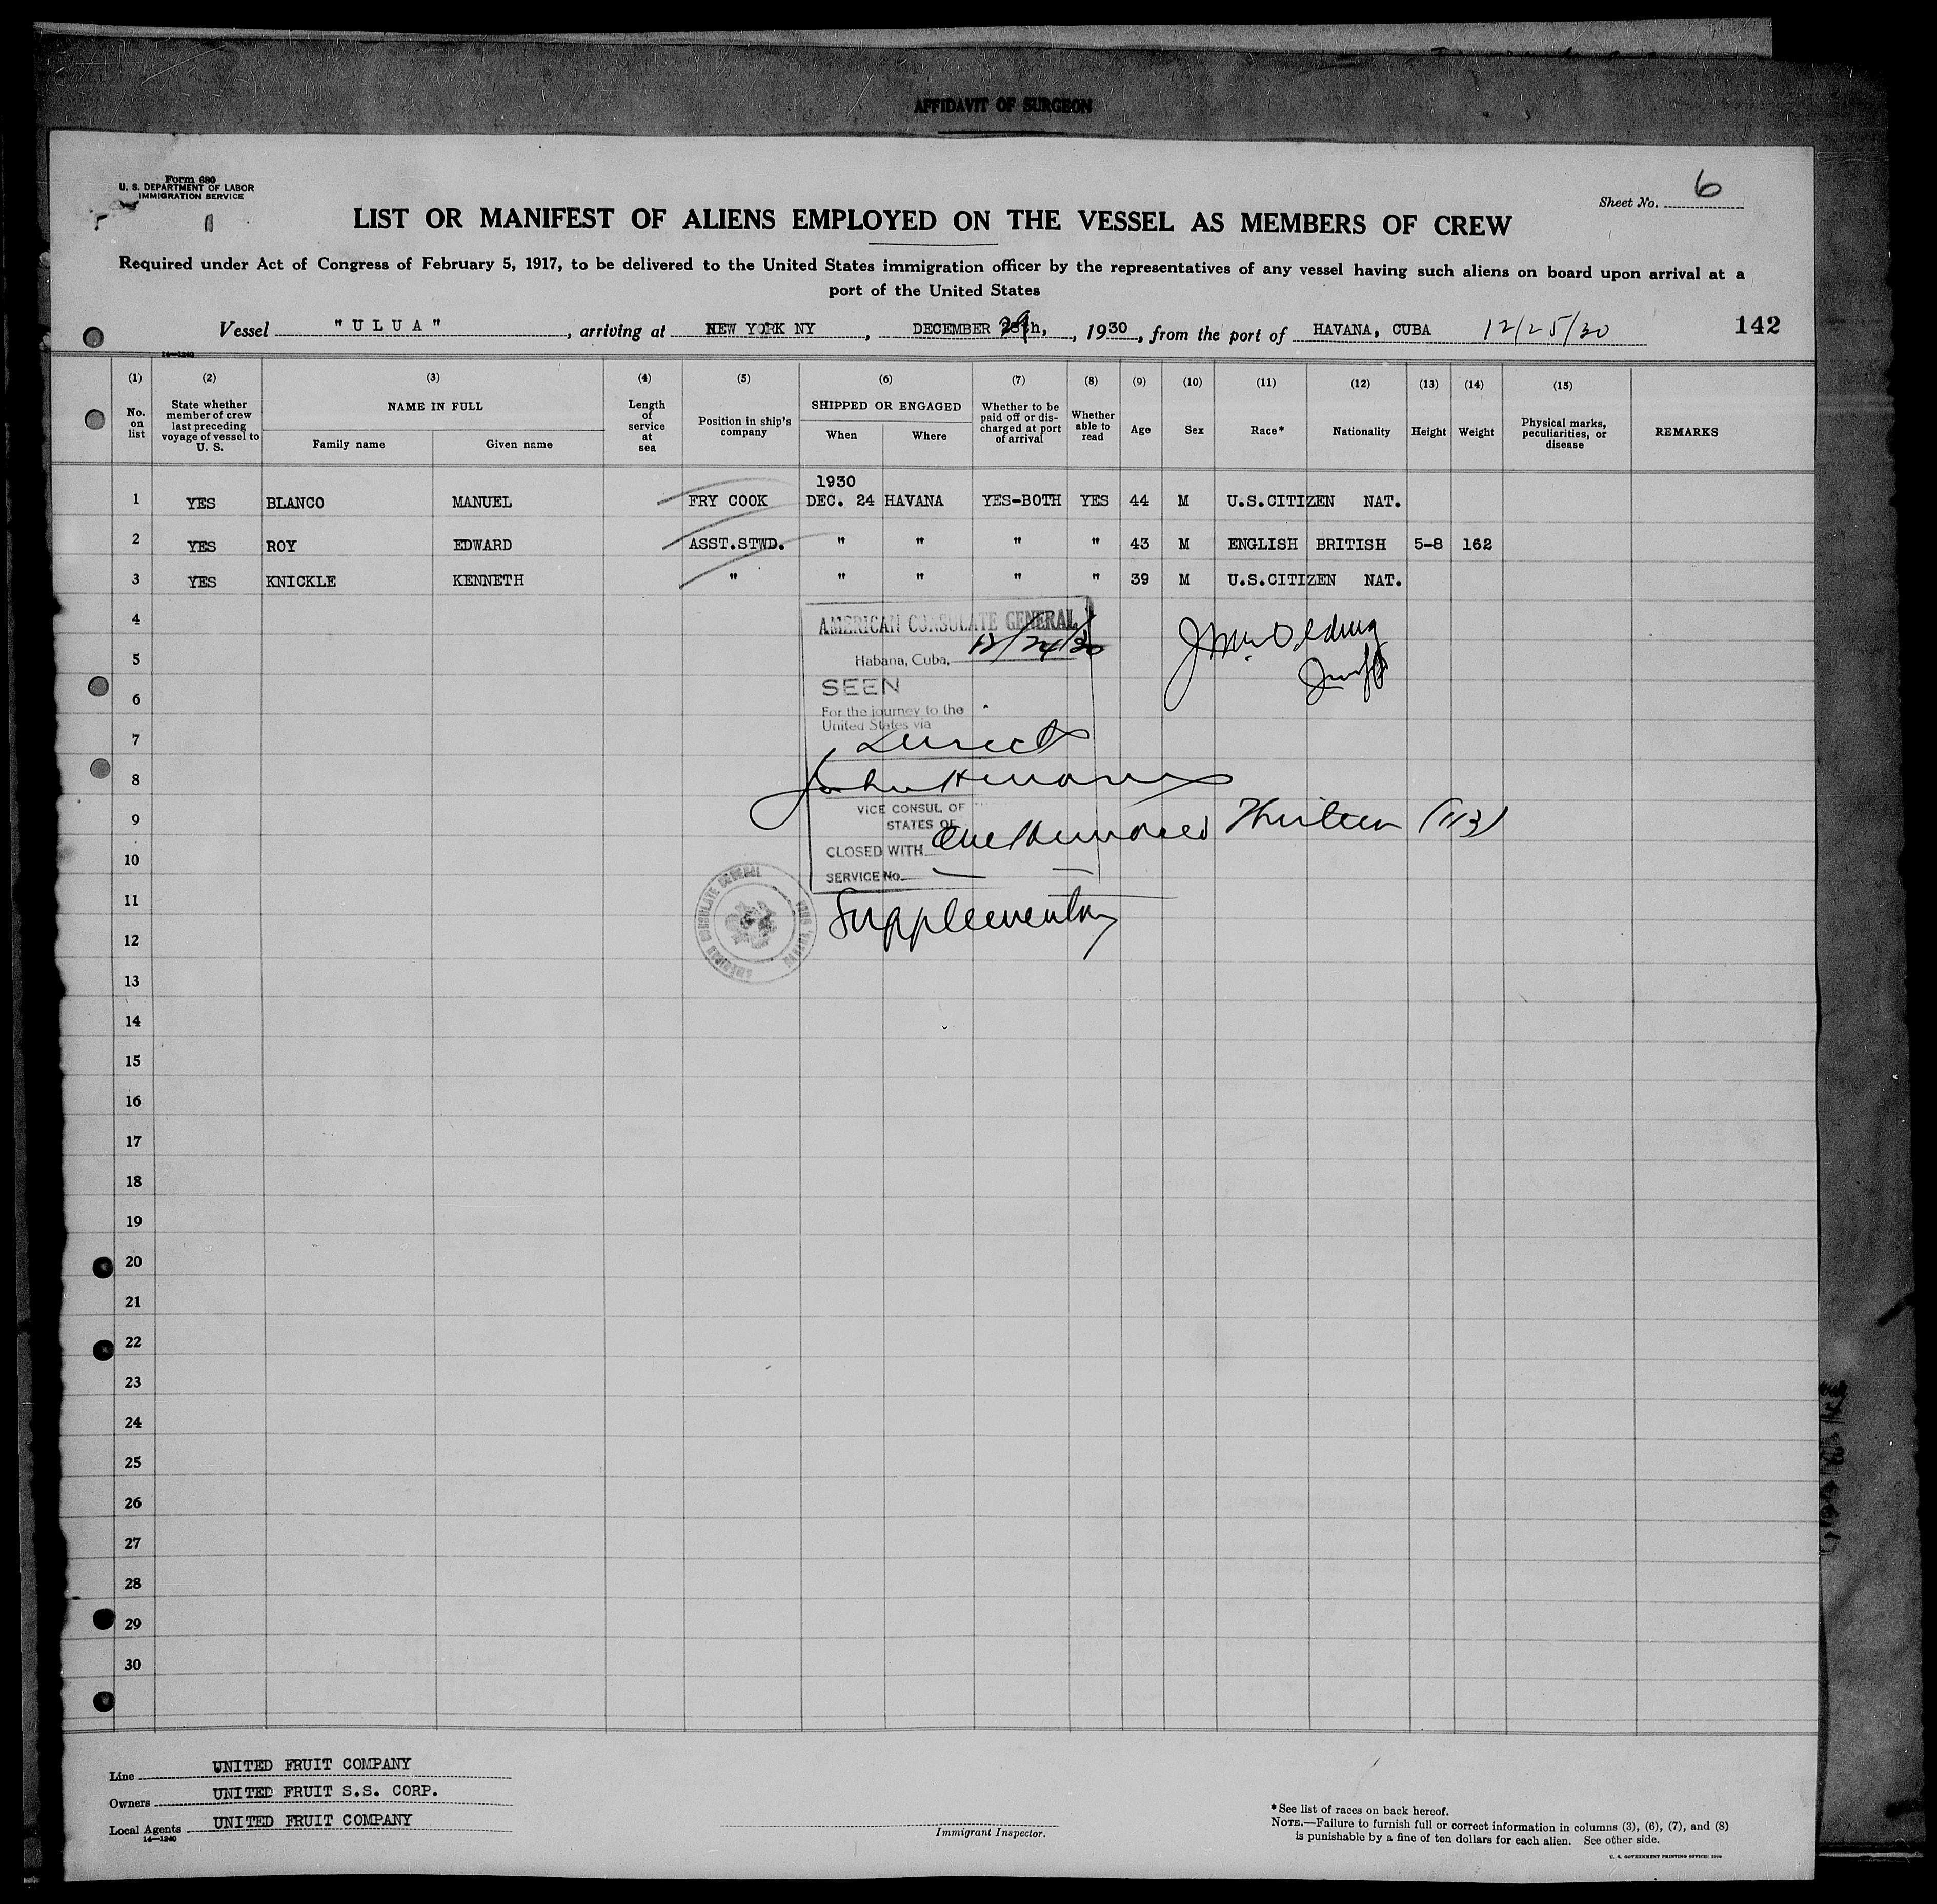 AFFIDAVIT OF SURGEON
Form 680
U. S. DEPARTMENT OF LABOR
IMMIGRATION SERVICE
Sheet No. 6
LIST OR MANIFEST OF ALIENS EMPLOYED ON THE VESSEL AS MEMBERS OF CREW
Required under Act of Congress of February 5, 1917, to be delivered to the United States immigration officer by the representatives of any vessel having such aliens on board upon arrival at a
port of the United States
Vessel "ULUA", arriving at NEW YORK NY, DECEMBER 29th, 1930, from the port of HAVANA, CUBA 12/25/30 142
14—1240
(1) (2) (3) (4) (5) (6) (7) (8) (9) (10) (11) (12) (13) (14) (15)
No. on list State whether member of crew last preceding voyage of vessel to U. S. NAME IN FULL Family name Given name Length of service at sea Position in ship's company SHIPPED OR ENGAGED When Where Whether to be paid off or discharged at port of arrival Whether able to read Age Sex Race* Nationality Height Weight Physical marks, peculiarities, or disease REMARKS
1930
1 YES BLANCO MANUEL FRY COOK DEC. 24 HAVANA YES-BOTH YES 44 M U.S.CITIZEN NAT.
2 YES ROY EDWARD ASST.STWD. " " " " 43 M ENGLISH BRITISH 5-8 162
3 YES KNICKLE KENNETH " " " " " 39 M U.S.CITIZEN NAT.
4
AMERICAN CONSULATE GENERAL
5
Habana, Cuba, 12/24/30
SEEN
6
For the journey to the
United States via
7
Direct
8
VICE CONSUL OF
9
STATES OF
CLOSED WITH One Hundred Thirteen (113)
10
SERVICE No.
11
Supplementary
AMERICAN CONSULATE GENERAL
12
13
14
15
16
17
18
19
20
21
22
23
24
25
26
27
28
29
30
Line UNITED FRUIT COMPANY
Owners UNITED FRUIT S.S. CORP.
Local Agents UNITED FRUIT COMPANY
14—1240
Immigrant Inspector.
*See list of races on back hereof.
NOTE.—Failure to furnish full or correct information in columns (3), (6), (7), and (8)
is punishable by a fine of ten dollars for each alien. See other side.